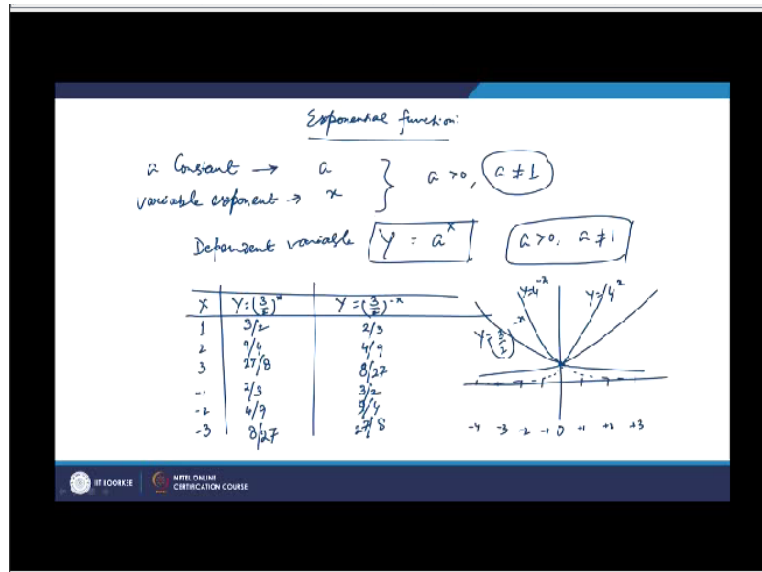 Exponential function:
a Constant → a
variable exponent → x } a >0, a ≠ 1
Dependent variable Y = a^x a >0, a ≠ 1
X Y = (3/2)^x Y = (3/2)^-x
1 3/2 2/3
2 9/4 4/9
3 27/8 8/27
-1 2/3 3/2
-2 4/9 9/4
-3 8/27 27/8
Y=4^-x Y=4^x
Y=(3/2)^-x
-4 -3 -2 -1 0 +1 +2 +3
IIT ROORKEE NPTEL ONLINE
CERTIFICATION COURSE